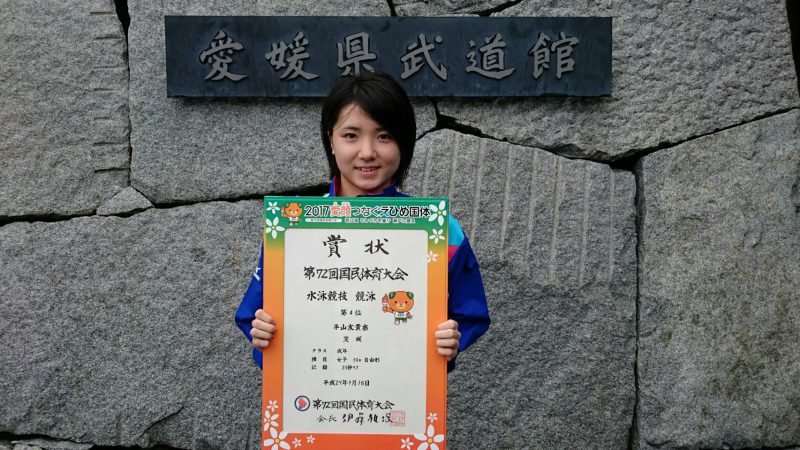 愛媛県武道館
2017愛顔つなぐえひめ国体
賞状
第72回国民体育大会
水泳競技 競泳
第4位
平山友貴奈
茨城
クラス 成年
種目 女子 50m 自由形
記録
平成29年9月16日
第72回国民体育大会
会長